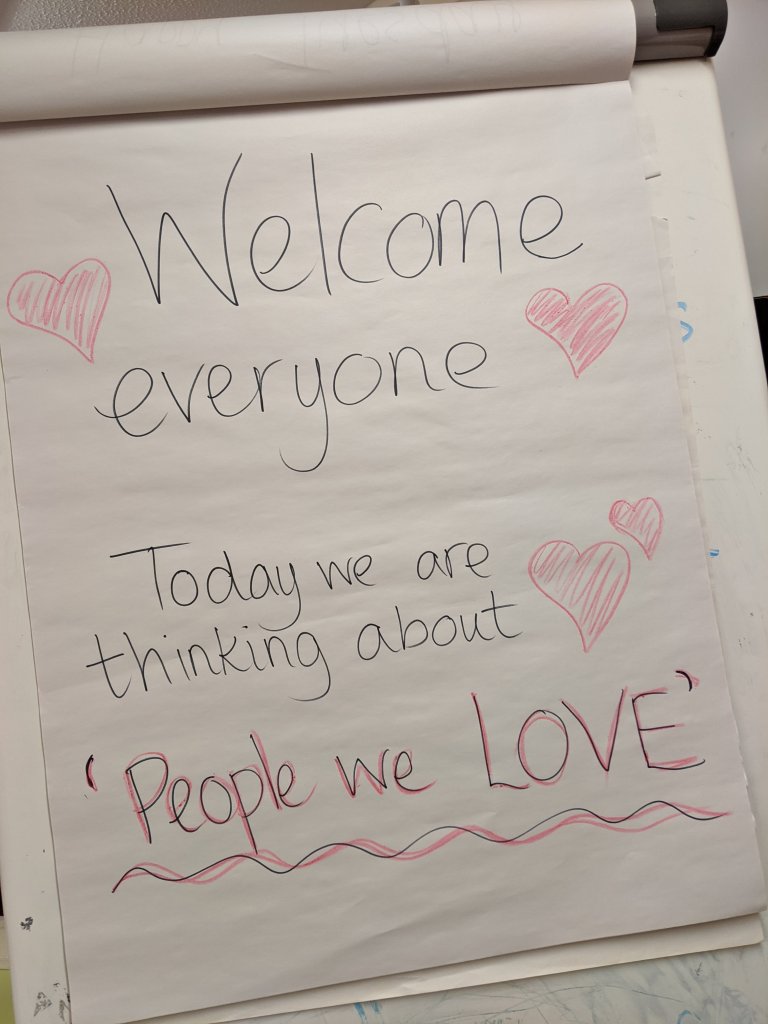 Welcome
everyone
Today we are
thinking about
'People we LOVE'